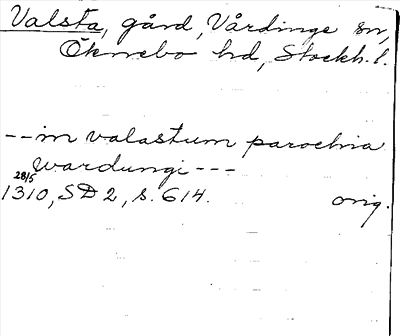 Valsta, gård, Vårdinge sn,
Öknebo hd, Stockh. l.
--in valastum parochia
wardungi---
28/5
1310, SD 2, s. 614. orig.